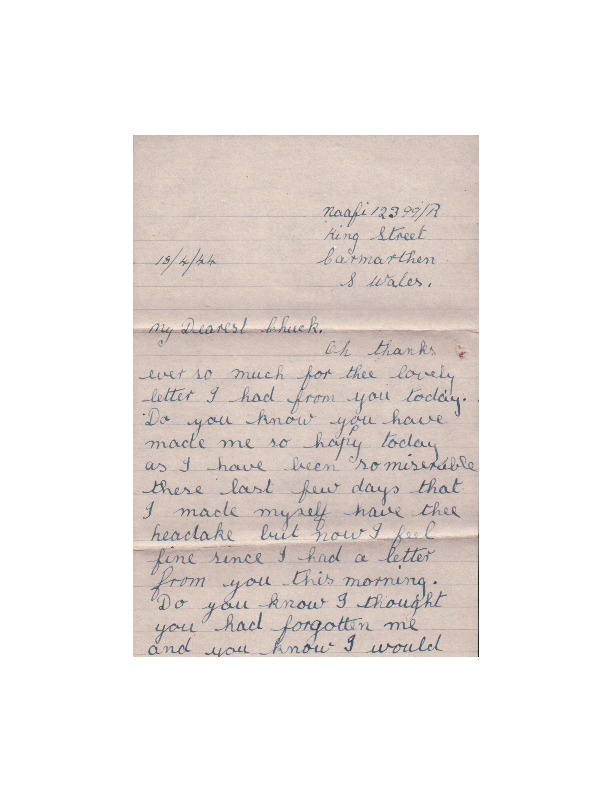 Naafi 12399/R
King Street
18/4/44 Carmarthen
S Wales.
My Dearest Chuck.
Oh thanks
ever so much for thee lovely
letter I had from you today.
Do you know you have
made me so hapy today
as I have been so miserable
these last few days that
I made myself have thee
headake but now I feel
fine since I had a letter
from you this morning.
Do you know I thought
you had forgotten me
and you know I would